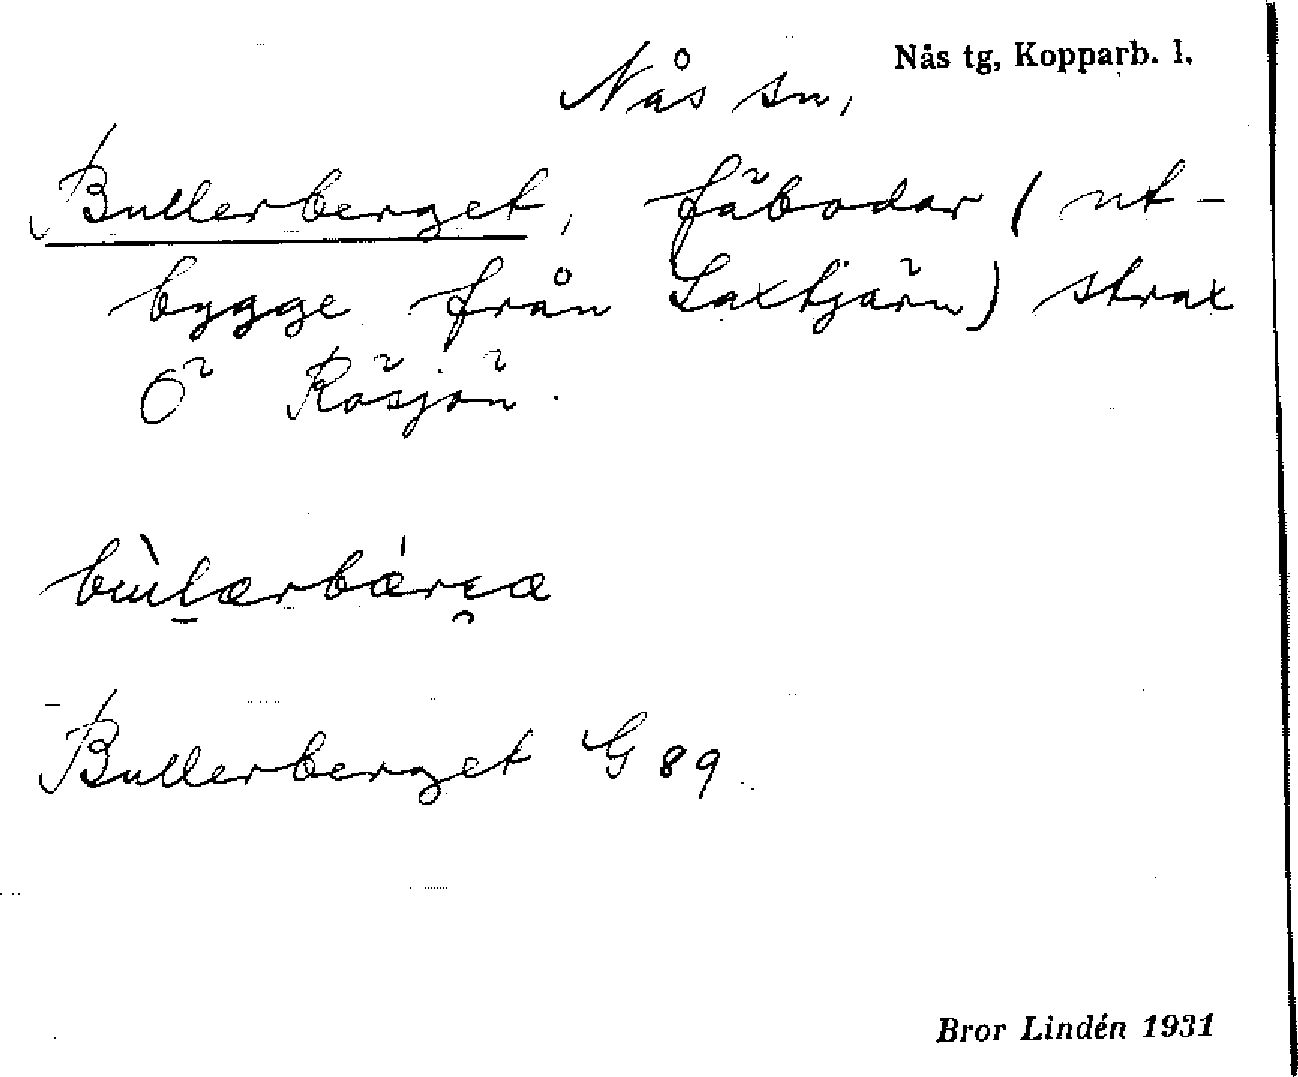 Nås tg, Kopparb. l.
Nås sn,
Bullerberget, fäbodar (ut-
bygge från Laxtjärn) strax
Ö Råsjön.
Bullerberget G 89.
Bror Lindén 1931